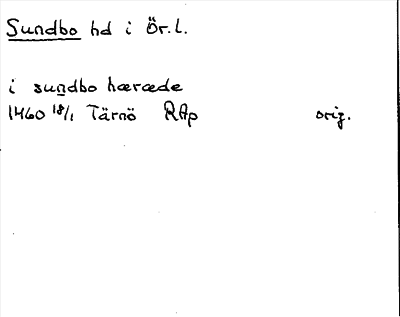 Sundbo hd i Ör.l.
i sundbo hæræde
1460 18/1 Tärnö RAp orig.